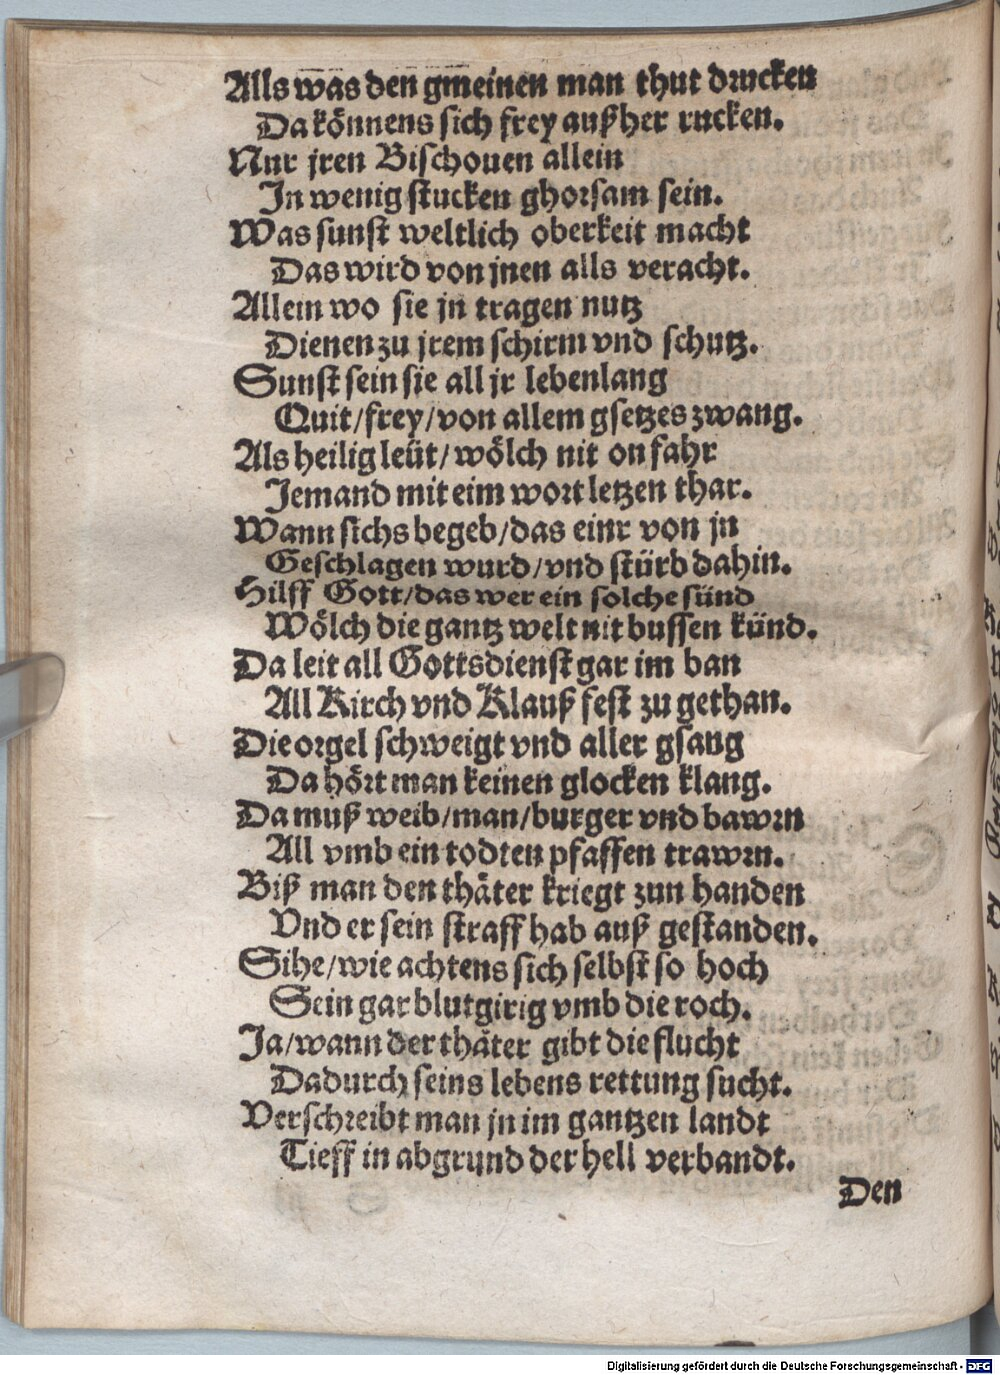 Alls was den gmeinen man thut drucken
Da könnens sich frey außher rucken.
Nur jren Bischouen allein
In wenig stucken ghorsam sein.
Was sunst weltlich oberkeit macht
Das wird von jnen alls veracht.
Allein wo sie jn tragen nutz
Dienen zu jrem schirm vnd schutz.
Sunst sein sie all jr lebenlang
Quit/frey/von allem gsetzes zwang.
Als heilig leüt/wölch nit on fahr
Jemand mit eim wort letzen thar.
Wann sichs begeb/das einr von jn
Geschlagen wurd/vnd stürb dahin.
Hilff Gott/das wer ein solche sünd
Wölch die gantz welt nit bussen künd.
Da leit all Gottsdienst gar im ban
All Kirch vnd Klauß fest zu gethan.
Die orgel schweigt vnd aller gsang
Da hört man keinen glocken klang.
Da muß weib/man/burger vnd bawrn
All vmb ein todten pfaffen trawrn.
Biß man den thäter kriegt zun handen
Vnd er sein straff hab auß gestanden.
Sihe/wie achtens sich selbst so hoch
Sein gar blutgirig vmb die roch.
Ja/wann der thäter gibt die flucht
Dadurch seins lebens rettung sucht.
Verschreibt man jn im gantzen landt
Tieff in abgrund der hell verbandt.
Den
Digitalisierung gefördert durch die Deutsche Forschungsgemeinschaft - DFG